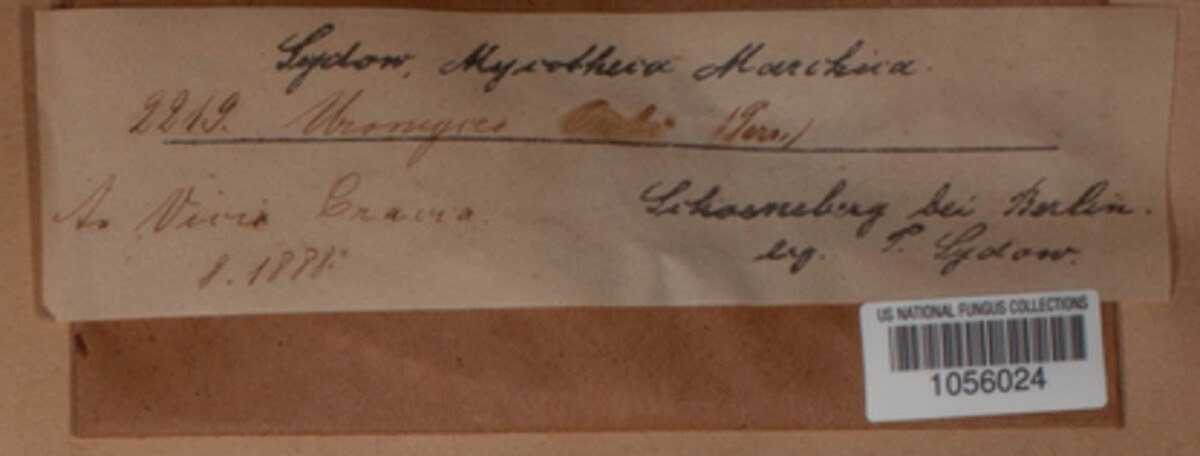 Sydow, Mycotheca Marchica.
2219. Uromyces (Pers.)
An Vicia Cracca.
8. 188
Schoeneberg bei Berlin.
leg. P. Sydow.
US NATIONAL FUNGUS COLLECTIONS
1056024